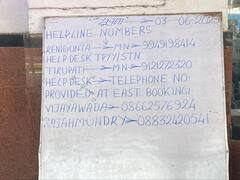 03-06-2023
HELPLINE NUMBERS
RENIGUNTA → MN → 9949198414
HELP DESK TPTY STN
TIRUPATI → MN → 9121272320
HELP DESK → TELEPHONE NO.
PROVIDED AT EAST BOOKING
VIJAYAWADA → 08662576924
RAJAHMONDRY → 08832420541